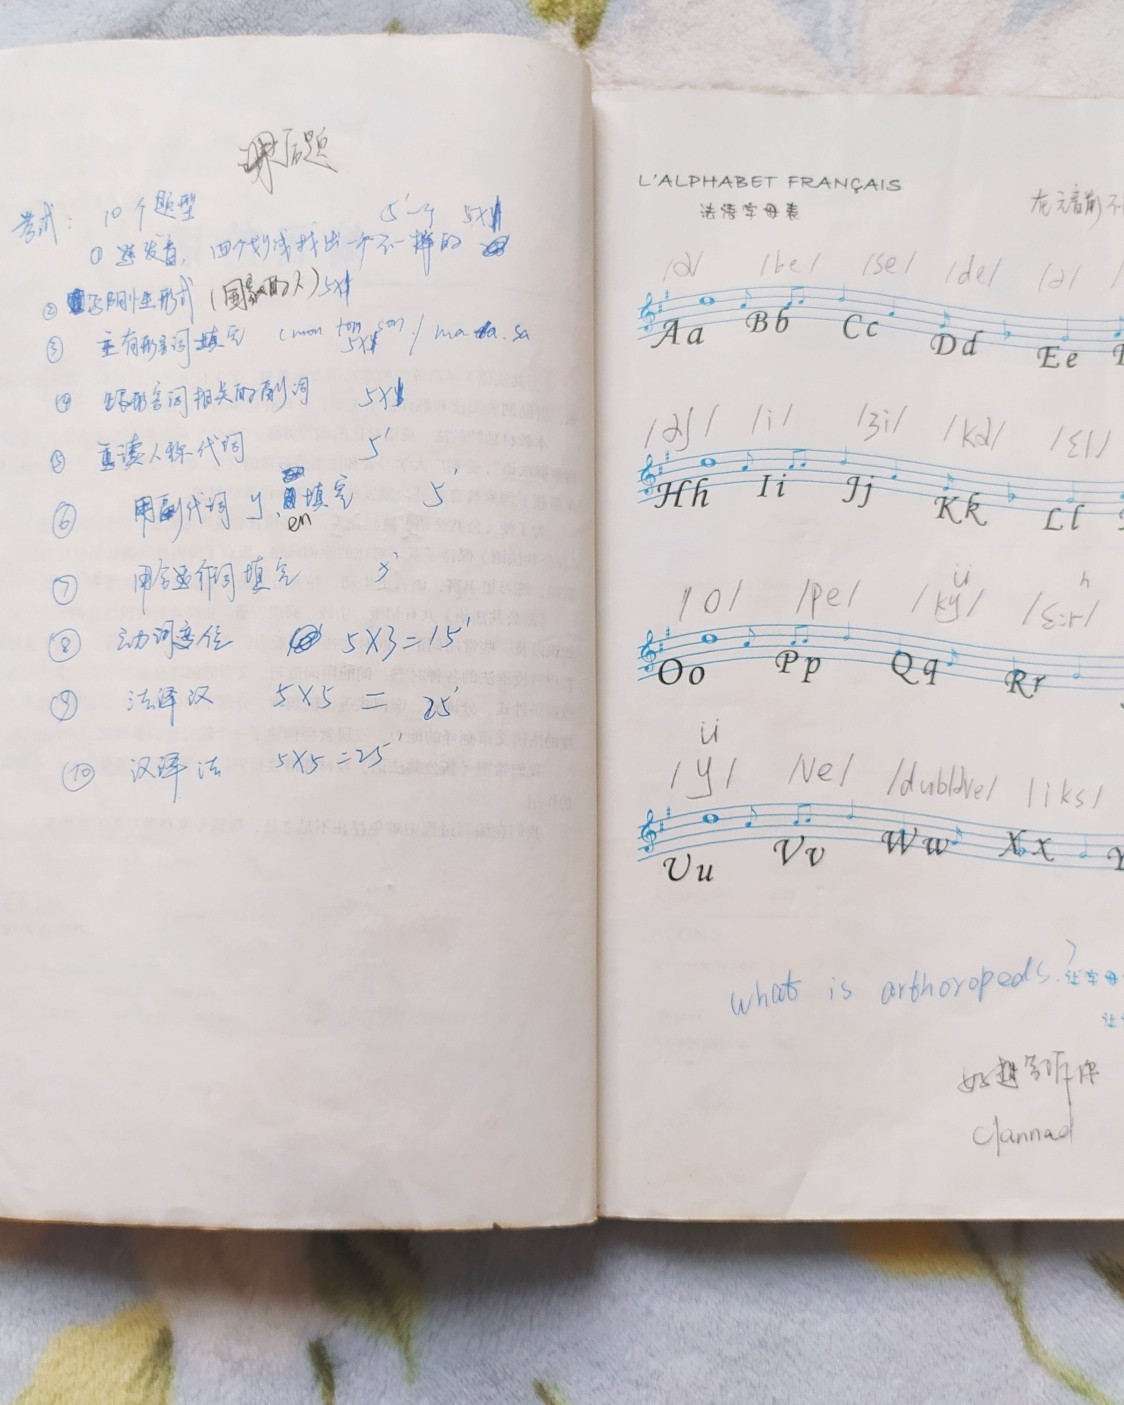 课后题
考试: 10个题型 5'一个 5×1
① 选发音, 四个划线找出一个不一样的
② 写阴性形式 (国家的人) 5×1
③ 主有形容词填空 (mon ton son / ma ta. sa
5×1
④ 与形容词相关的副词 5×1
⑤ 重读人称代词 5'
⑥ 用副代词 y、填空 5'
en
⑦ 用合适介词填空
⑧ 动词变位 5×3=15'
⑨ 法译汉 5×5= 25'
⑩ 汉译法 5×5=25'
L'ALPHABET FRANÇAIS
法语字母表
在元音前不
/a/ /be/ /se/ /de/ /ə/
Aa Bb Cc Dd Ee
/aʃ/ /i/ /ʒi/ /ka/ /ɛl/
Hh Ii Jj Kk Ll
ü
/o/ /pe/ /ky/ /ɛ:r/
Oo Pp Qq Rr
ü
/y/ /ve/ /dubləve/ /iks/
Uu Vv Ww Xx Y
what is arthoropeds?
让字母
让
好想
Clannad